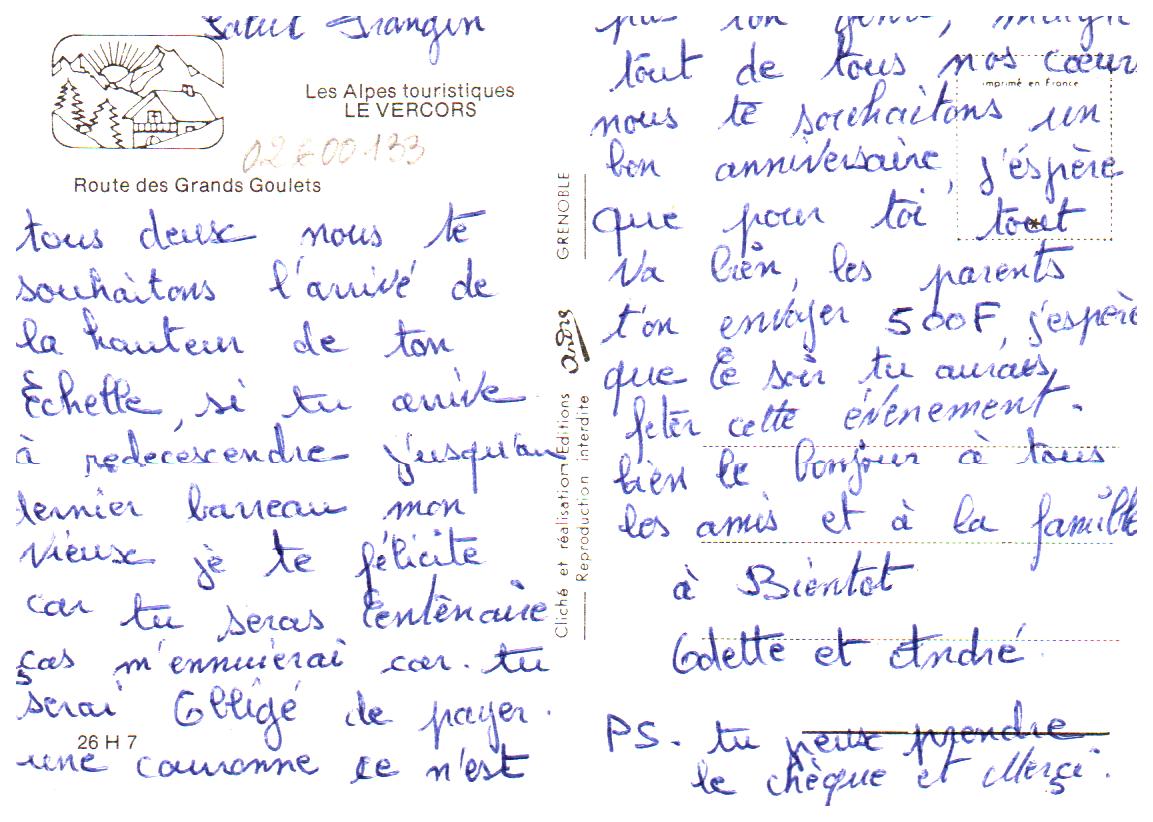 Salut Frangin
Les Alpes touristiques
LE VERCORS
02600133
Route des Grands Goulets
tous deux nous te
souhaitons l'arrivé de
la hauteur de ton
Echelle, si tu arrive
à redecescendre j'usqu'au
dernier barreau mon
vieux je te félicite
car tu seras Centenaire
ças m'ennuierai car tu
serai Obligé de payer
26 H 7
une couronne ce n'est
pas ton genre, malgré
tout de tous nos cœur
imprimé en France
nous te souhaitons un
bon anniversaire, j'éspère
que pour toi tout
va bien, les parents
t'on envoyer 500F, j'espère
que ce soir tu aurais
fetér cette évenement.
bien le bonjour à tous
les amis et à la famille
à Bientot
Odette et André
PS. tu peux prendre
le chèque et Merçi.
GRENOBLE
andré
Cliché et réalisation Editions
Reproduction interdite